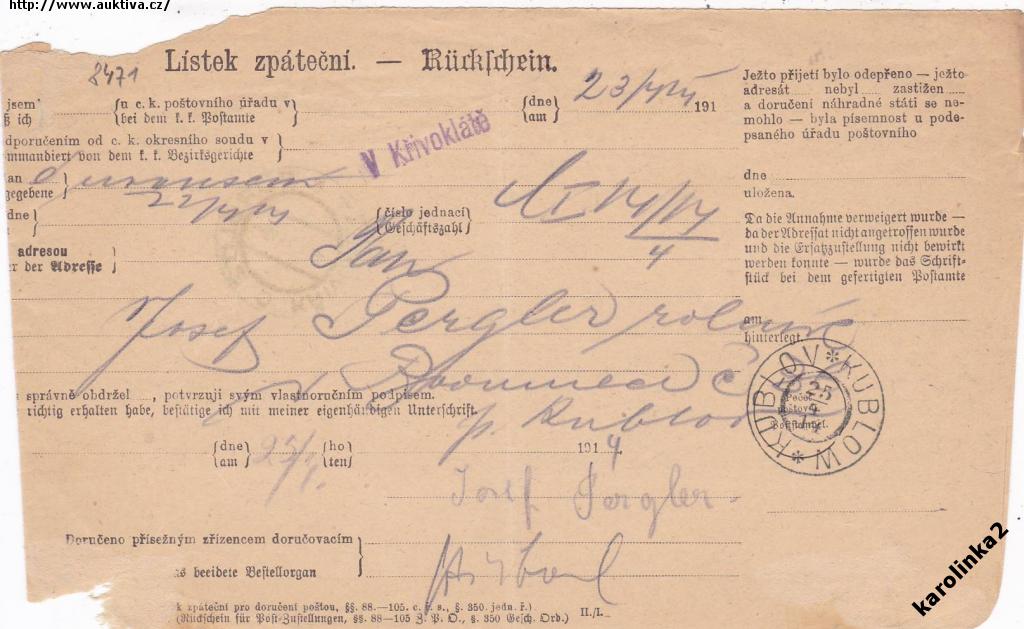 http://www.auktiva.cz/
8471
Lístek zpáteční. — Rückschein.
jsem u c. k. poštovního úřadu v dne 23/ 191
ß ich bei dem k. k. Postamte am
V Křivoklátě
odporučením od c. k. okresního soudu v
ommandiert von dem k. k. Bezirksgerichte
an
gegebene
dne číslo jednací
Geschäftszahl
4
adresou Pan
er der Adresse
Josef Pergler rolník
v č
s správně obdržel ...., potvrzuji svým vlastnoručním podpisem.
richtig erhalten habe, bestätige ich mit meiner eigenhändigen Unterschrift.
p. Kublov
dne ho 1914
am ten
Josef Pergler
Doručeno přísežným zřízencem doručovacím
s beeidete Bestellorgan
k zpáteční pro doručení poštou, §§. 88.—105. c. ř. s., §. 350. jedn. ř.)
(Rückschein für Post-Zustellungen, §§. 88—105 Z. P. O., §. 350 Gesch. Ord.) II./I.
Ježto přijetí bylo odepřeno — ježto
adresát nebyl zastižen
a doručení náhradné státi se ne-
mohlo — byla písemnost u pode-
psaného úřadu poštovního
dne
uložena.
Da die Annahme verweigert wurde —
da der Adressat nicht angetroffen wurde
und die Ersatzzustellung nicht bewirkt
werden konnte — wurde das Schrift-
stück bei dem gefertigten Postamte
am
hinterlegt.
KUBLOV * KUBLOW *
25
4
14
Pečeť
poštov
Poststempel.
karolinka2